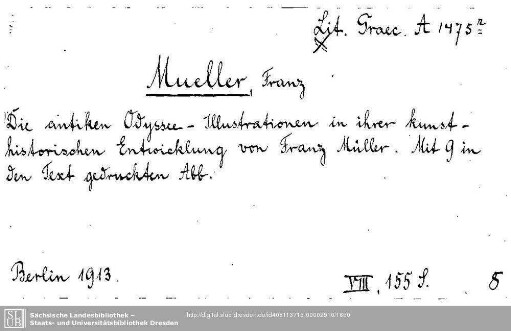 Lit. Graec. A 1475ⁿ
Mueller, Franz
Die antiken Odyssee-Illustrationen in ihrer kunst-
historischen Entwicklung von Franz Müller. Mit 9 in
den Text gedruckten Abb.
Berlin 1913.
VIII, 155 S. 8
Sächsische Landesbibliothek -
Staats- und Universitätsbibliothek Dresden